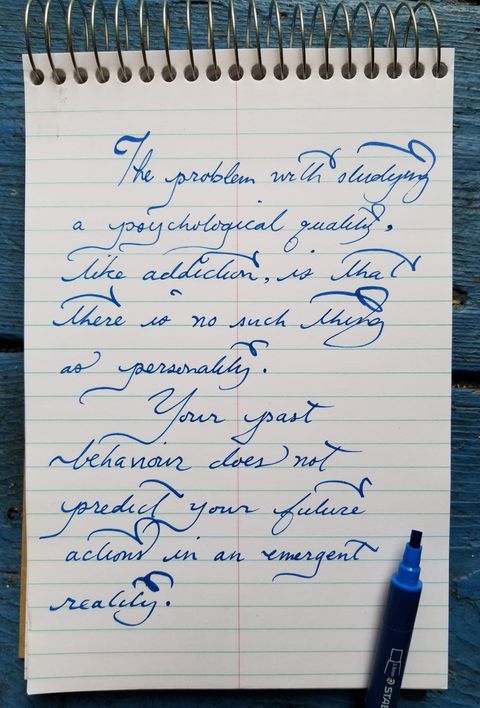 The problem with studying
a psychological quality,
like addiction, is that
there is no such thing
as personality.
Your past
behaviour does not
predict your future
actions in an emergent
reality.
STAB